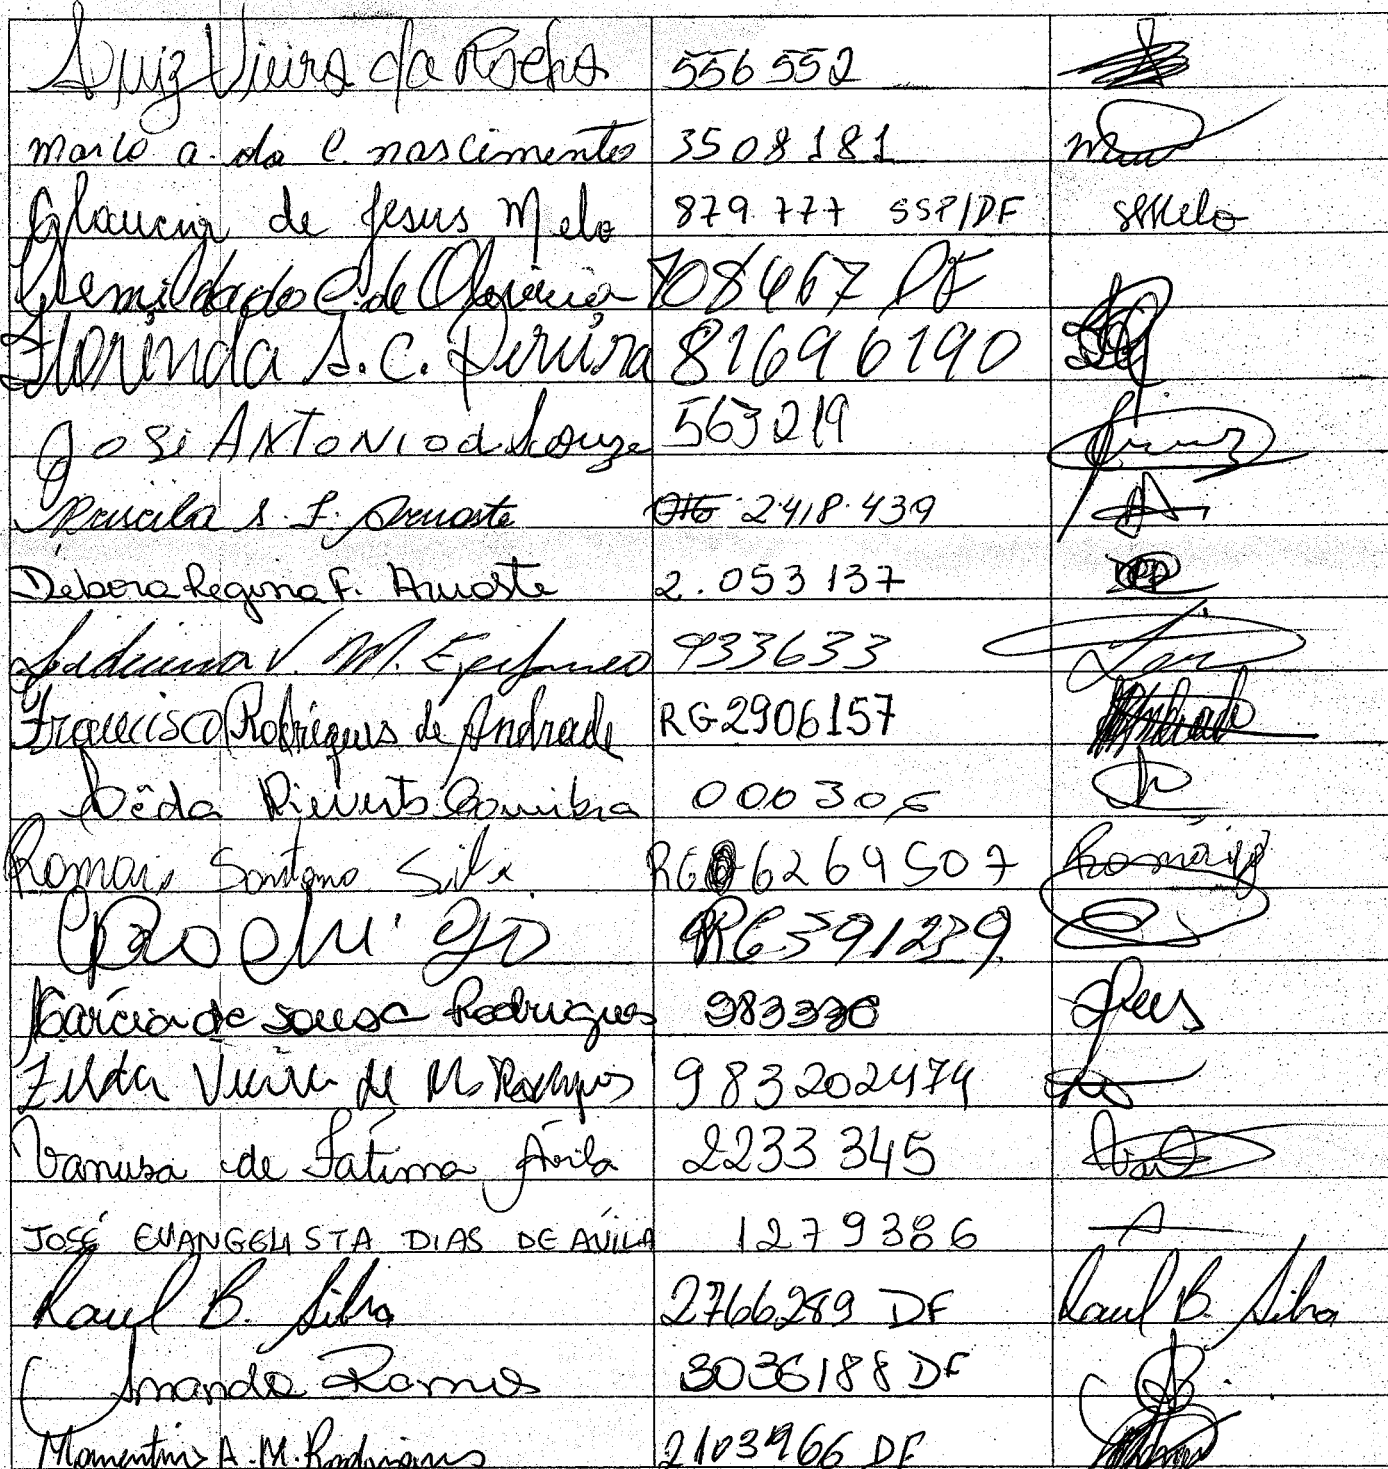 Luiz Vieira da Rocha 556552
Marco a. da C. nascimento 3508181
Glaucia de Jesus Melo 879.777 SSP/DF GJMelo
de Oliveira 708467 DF
Florinda S. C. Pereira 81696190
José ANTONIO d Souza 563219
Priscila S. F. 2.418.439
Debora Regina F. 2.053 137
V. M. Epifanio 933633
Francisco Rodrigues de Andrade RG2906157 Andrade
Lêda Coimbra 000306
Romari Santana Silva RG 6269507
RG391239
Márcia de Sousa Rodrigues 983330
Zilda Vieira de M. Rodrigues 983202474
Vanusa de Fátima Ávila 2233 345
JOSÉ EVANGELISTA DIAS DE AVILA 1279386
Raul B. Silva 2766289 DF Raul B. Silva
Amanda Ramos 3036188 DF
A. M. Rodrigues 2103966 DF